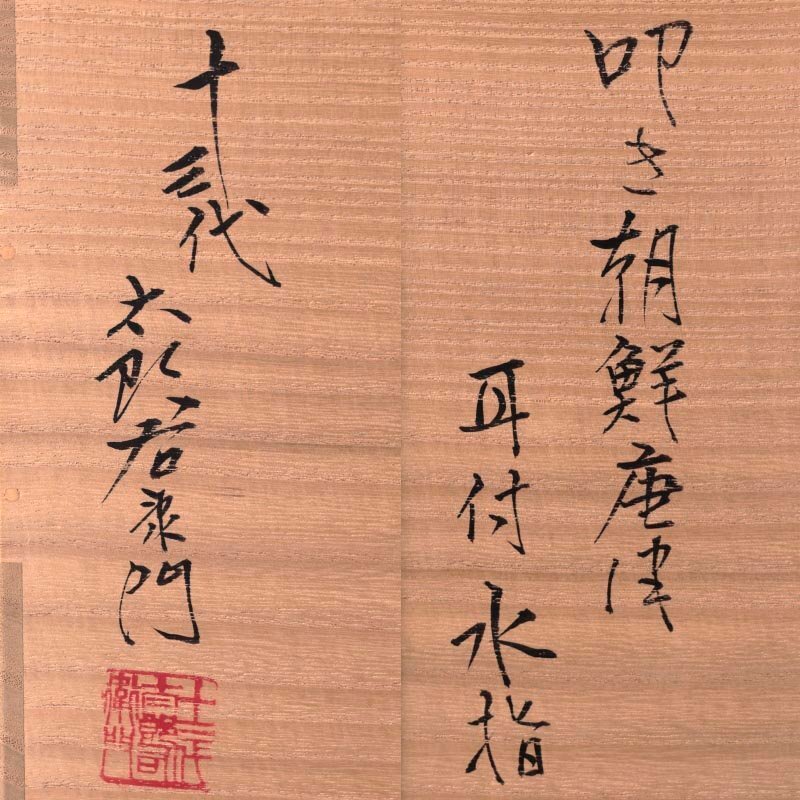 叩き朝鮮唐津
耳付水指
十三代
太郎右衛門